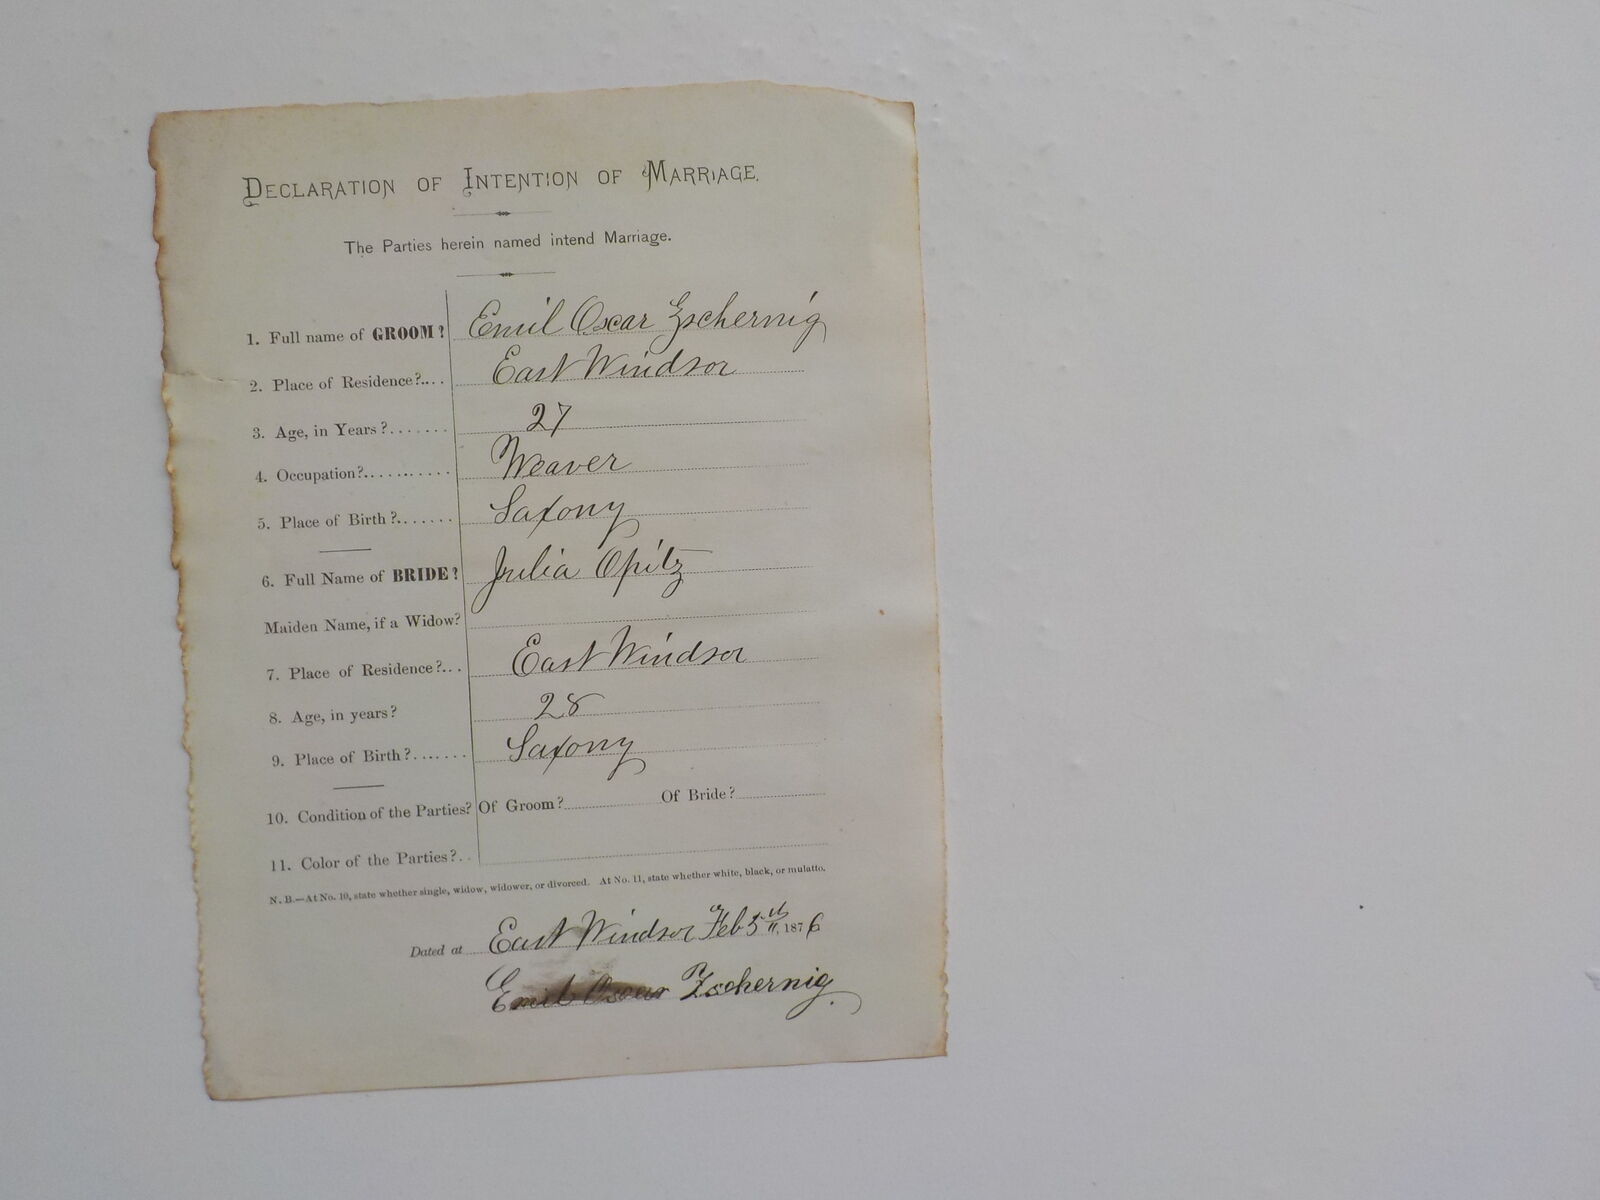 DECLARATION OF INTENTION OF MARRIAGE.
The Parties herein named intend Marriage.
1. Full name of GROOM? Emil Oscar Zschernig
2. Place of Residence?.... East Windsor
3. Age, in Years?....... 27
4. Occupation?.......... Weaver
5. Place of Birth?....... Saxony
6. Full Name of BRIDE? Julia Opitz
Maiden Name, if a Widow?
7. Place of Residence?... East Windsor
8. Age, in years? 28
9. Place of Birth?....... Saxony
10. Condition of the Parties? Of Groom? Of Bride?
11. Color of the Parties?..
N. B.—At No. 10, state whether single, widow, widower, or divorced. At No. 11, state whether white, black, or mulatto.
Dated at East Windsor Feb 5th, 1876
Emil Oscar Zschernig.